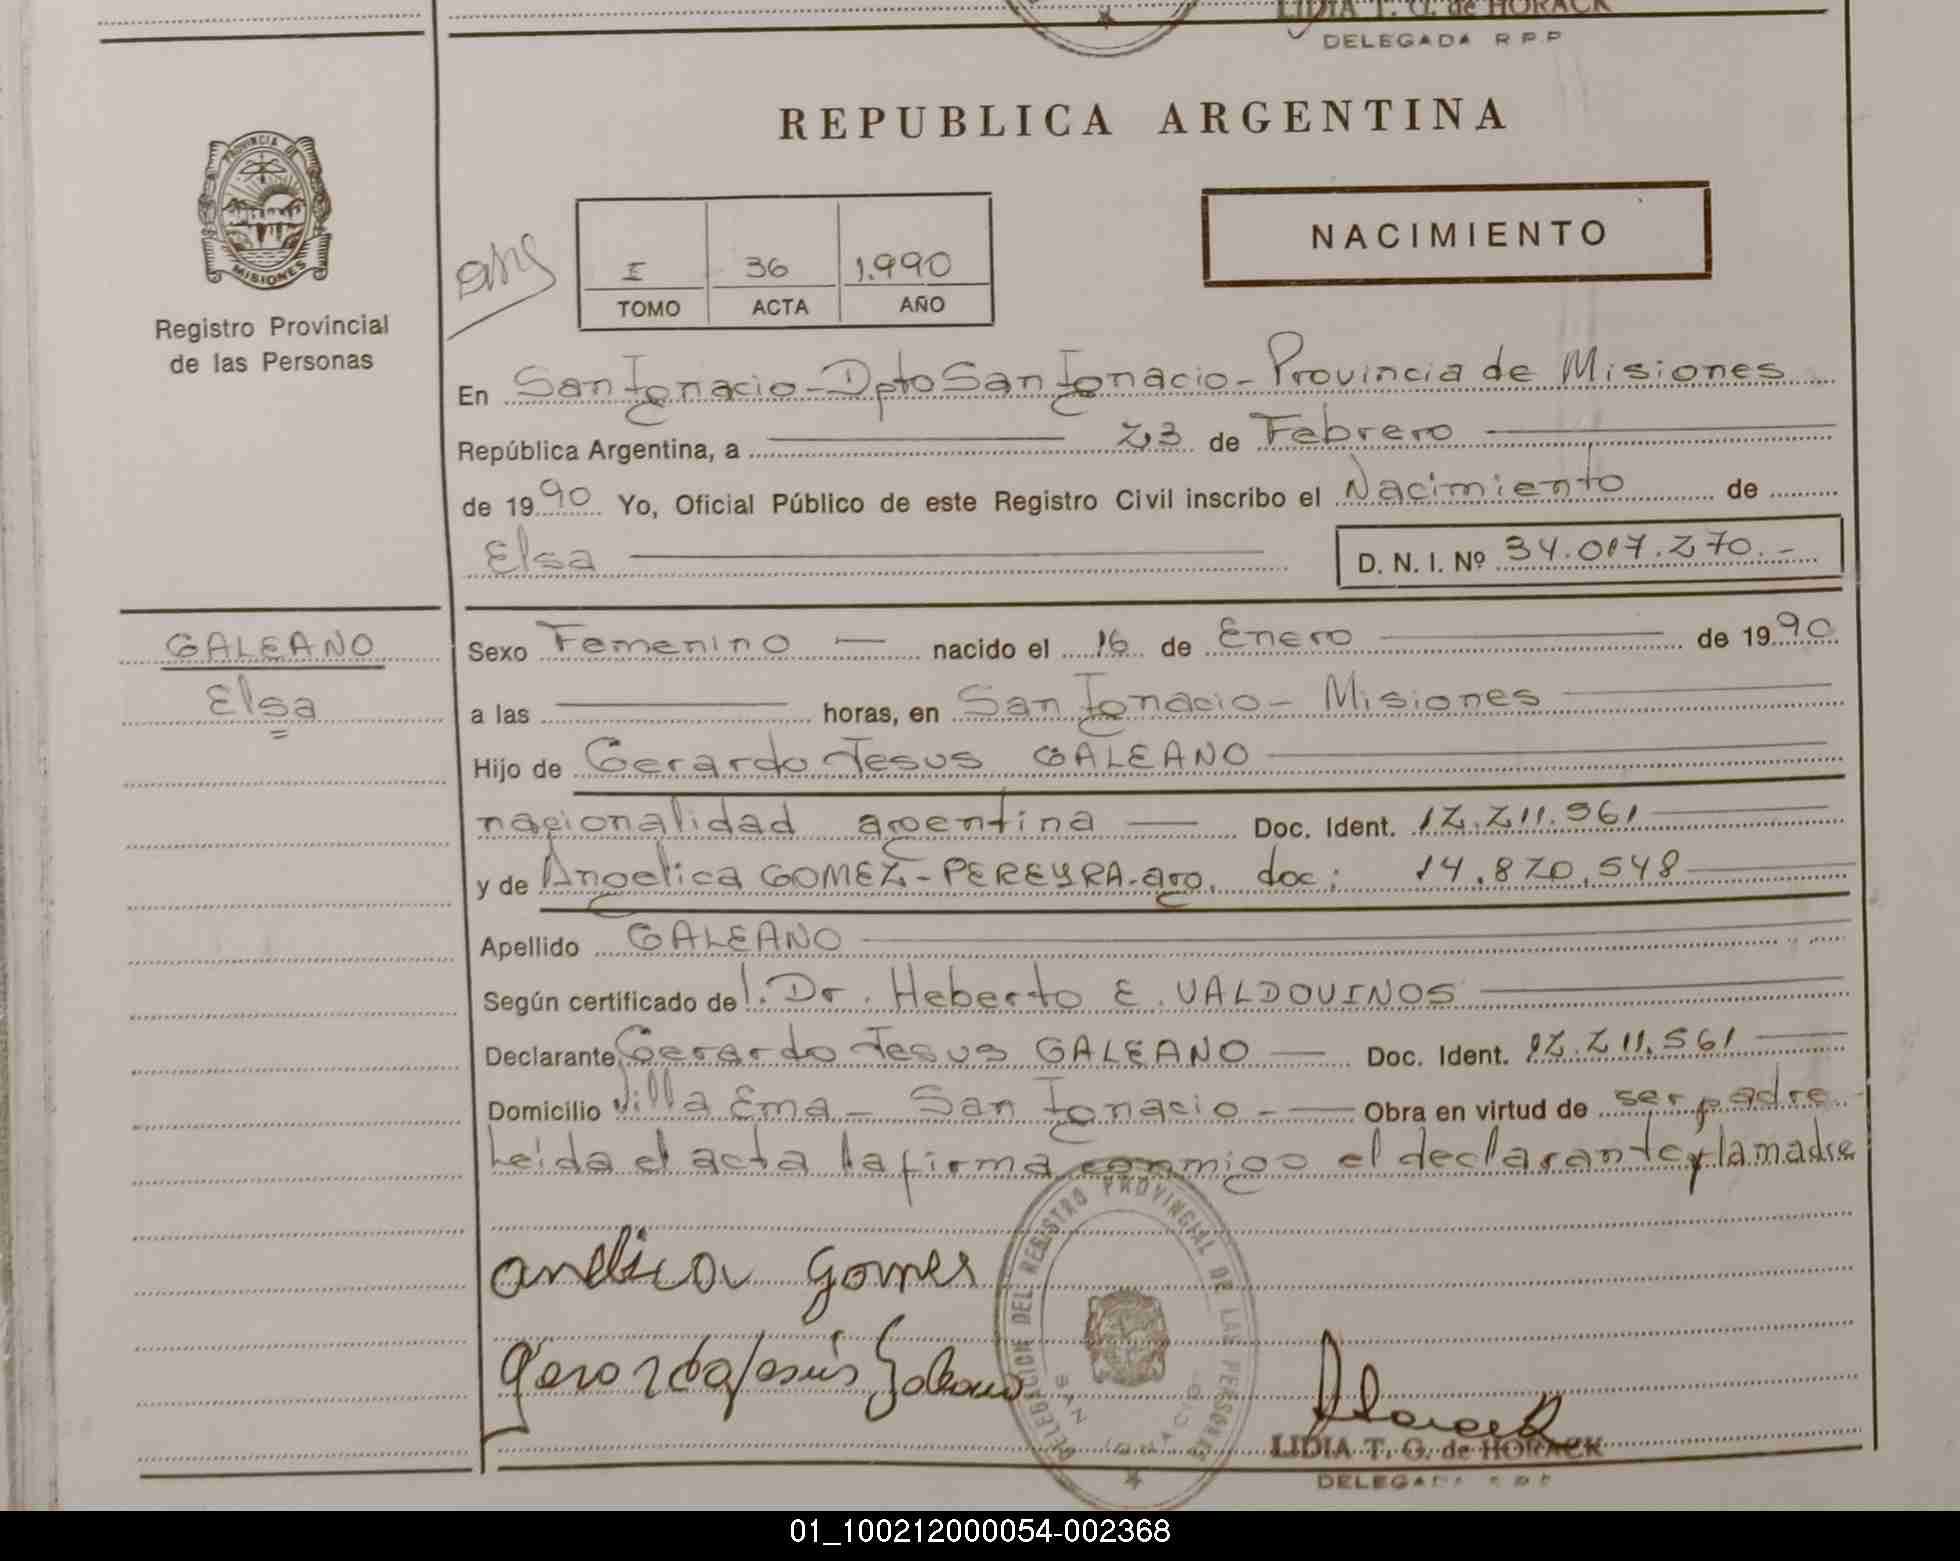 LIDIA T. G. de HORACK
DELEGADA R.P.P
REPUBLICA ARGENTINA
PROVINCIA DE
MISIONES
Registro Provincial
de las Personas
NACIMIENTO
I 36 1.990
TOMO ACTA AÑO
En San Ignacio - Dpto San Ignacio - Provincia de Misiones
República Argentina, a 23 de Febrero
de 1990 Yo, Oficial Público de este Registro Civil inscribo el Nacimiento de
Elsa D. N. I. Nº 34.017.270.-
GALEANO
Elsa
Sexo Femenino — nacido el 16 de Enero de 1990
a las horas, en San Ignacio - Misiones
Hijo de Gerardo Jesus GALEANO
nacionalidad argentina — Doc. Ident. 12.211.561
y de Angelica GOMEZ - PEREYRA - arg. doc: 14.870.548
Apellido GALEANO
Según certificado del. Dr. Heberto E. VALDOVINOS
Declarante Gerardo Jesus GALEANO — Doc. Ident. 12.211.561
Domicilio Villa Ema - San Ignacio - Obra en virtud de ser padre
Leida el acta la firma conmigo el declarante y la madre
anelica gomes
Gerardo Jesús Galeano
DELEGACION DEL REGISTRO PROVINCIAL DE LAS PERSONAS
SAN IGNACIO
LIDIA T. G. de HORACK
DELEGADA R.P.P
01_100212000054-002368